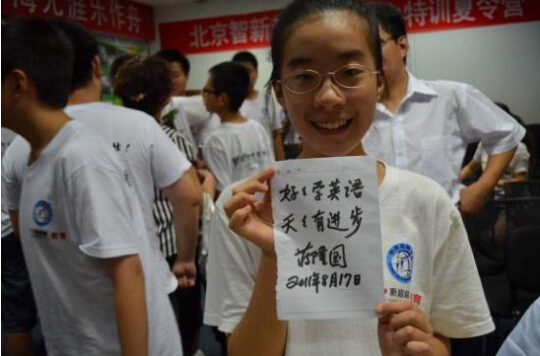 海无涯乐作舟
北京智新
特训夏令营
好〻学英语
天〻有进步
2011年8月17日